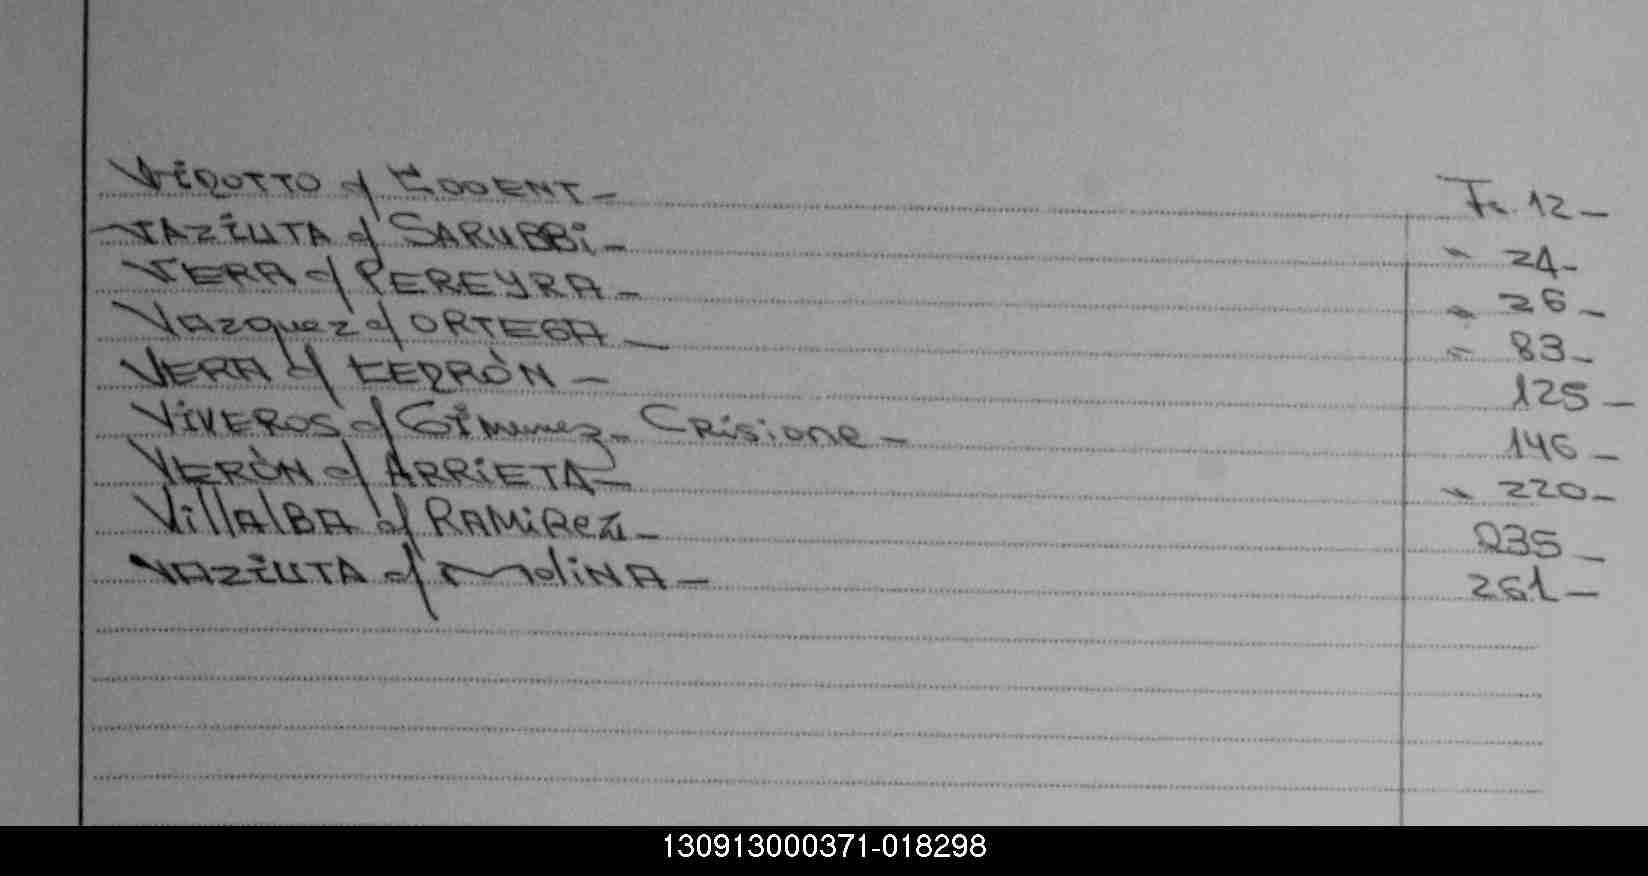 VIDOTTO c/ GODENT - Fs. 12 -
VAZIUTA c/ SARUBBI - " 24 -
VERA c/ PEREYRA - " 26 -
VAZQUEZ c/ ORTEGA - " 83 -
VERA c/ - 125 -
VIVEROS c/ GIMENEZ - CRISIONE - 146 -
VERÓN c/ ARRIETA - " 220 -
VILLALBA c/ RAMIREZ - 235 -
VAZIUTA c/ MOLINA - 261 -
130913000371-018298